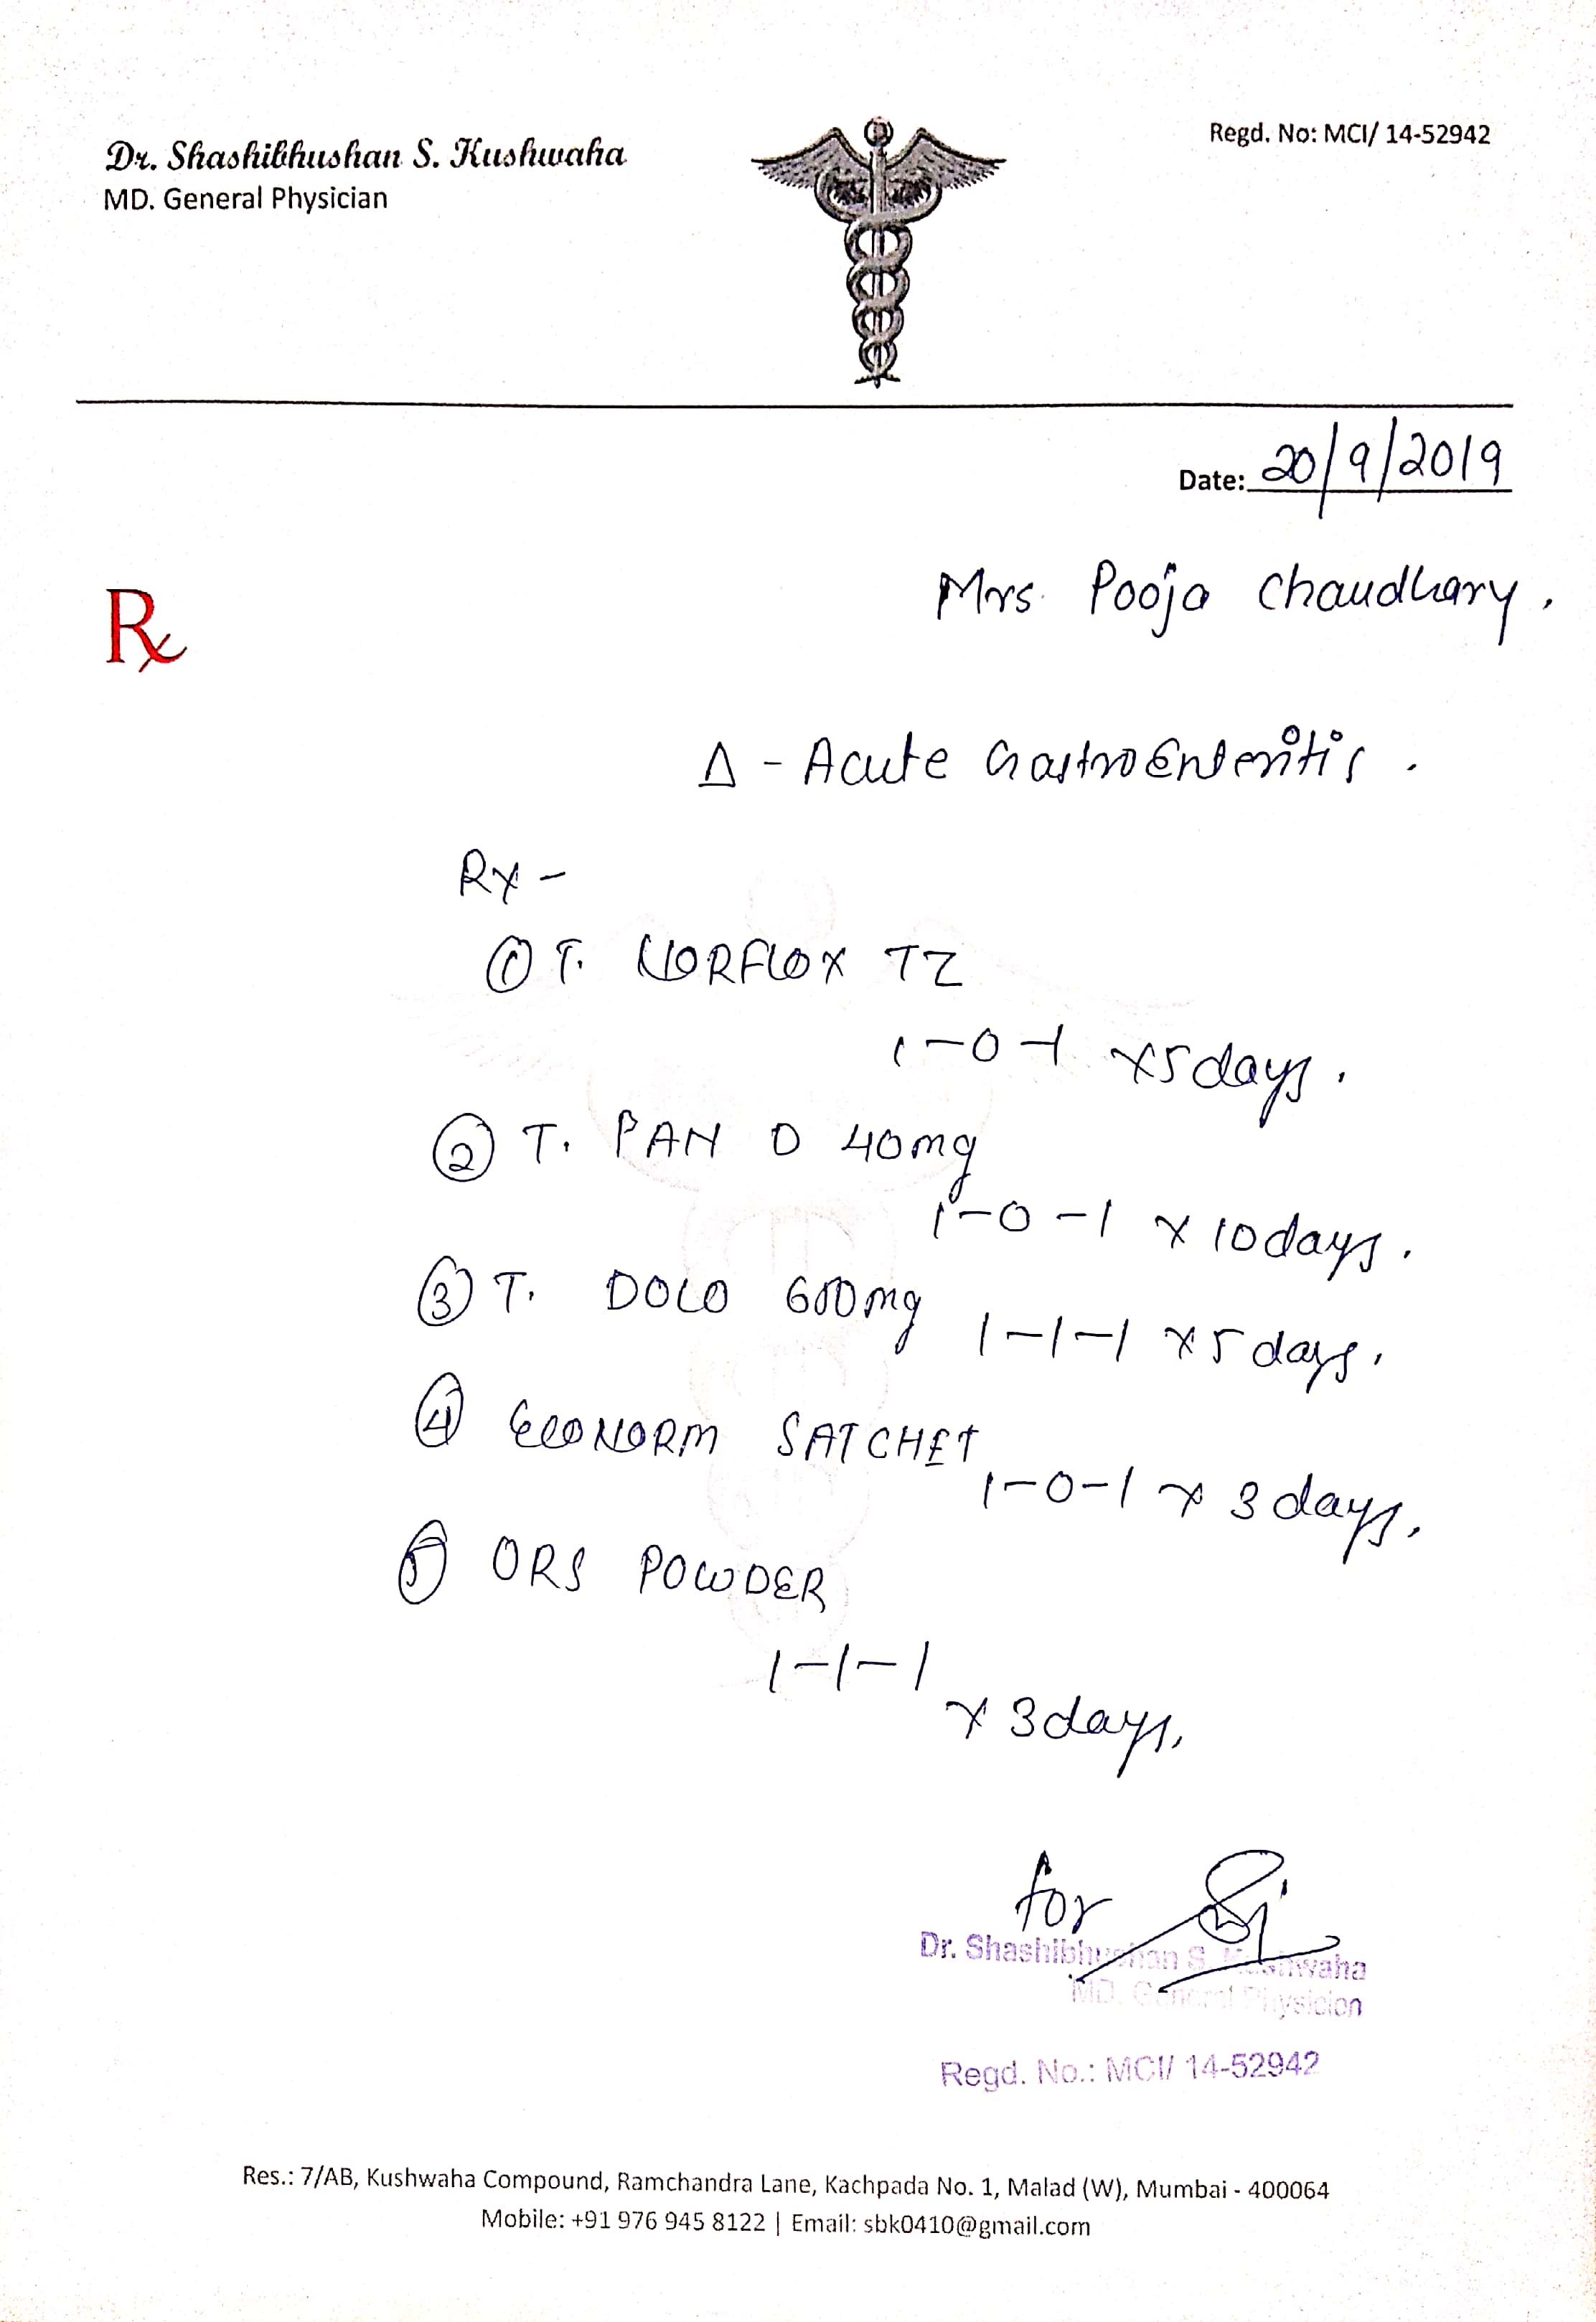 Dr. Shashibhushan S. Kushwaha
MD. General Physician
Regd. No: MCI/ 14-52942
Date: 20/9/2019
Mrs. Pooja Chaudhary.
Rx
Δ - Acute GastroEnteritis.
RX -
① T. NORFLOX TZ
1-0-1 x5days.
② T. PAN D 40mg
1-0-1 x 10days.
③ T. DOLO 600mg 1-1-1 x5days.
④ ECONORM SATCHET 1-0-1 x 3days.
⑤ ORS POWDER
1-1-1
x 3days.
for
Dr. Shashibhushan S. Kushwaha
MD. General Physician
Regd. No.: MCI/ 14-52942
Res.: 7/AB, Kushwaha Compound, Ramchandra Lane, Kachpada No. 1, Malad (W), Mumbai - 400064
Mobile: +91 976 945 8122 | Email: sbk0410@gmail.com